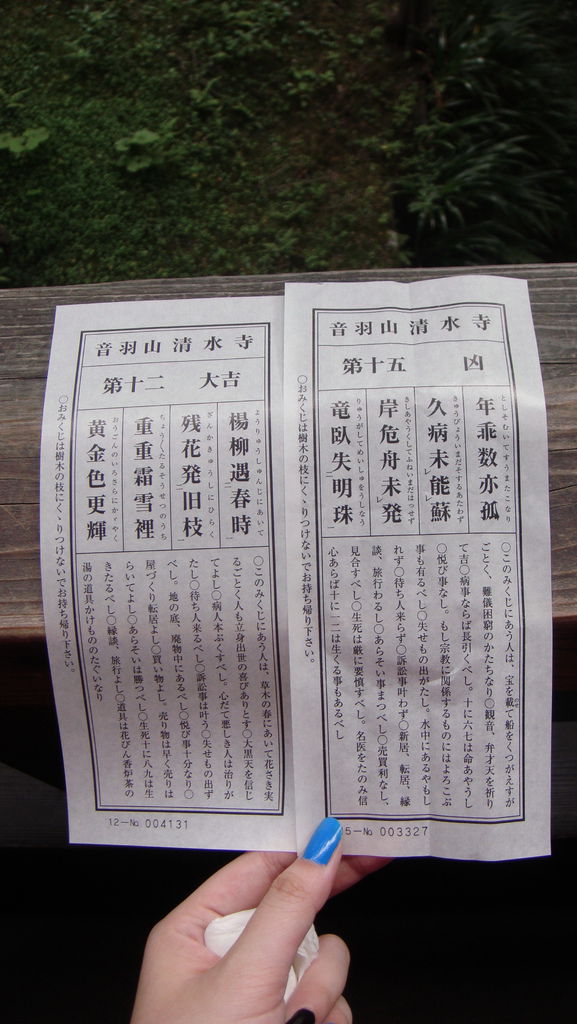 音羽山清水寺
第十五 凶
年乖数亦孤
としそむいてすうまたこなり
久病未能蘇
きゅうびょういまだそするあたわず
岸危舟未発
きしあやうくしてふねいまだはっせず
竜臥失明珠
りゅうがしてめいしゅをうしなう
○このみくじにあう人は、宝を載て船をくつがえすが
ごとく、難儀困窮のかたちなり○観音、弁才天を祈り
て吉○病事ならば長引くべし。十に六七は命あやうし
○悦び事なし。もし宗教に関係するものにはよろこぶ
事も有るべし○失せもの出がたし。水中にあるやもし
れず○待ち人来らず○訴訟事叶わず○新居、転居、縁
談、旅行わるし○あらそい事まつべし○売買利なし、
見合すべし○生死は厳に要慎すべし。名医をたのみ信
心あらば十に一二は生くる事もあるべし
○おみくじは樹木の枝にくゝりつけないでお持ち帰り下さい。
15-No 003327
音羽山清水寺
第十二 大吉
楊柳遇春時
ようりゅうしゅんじにあいて
残花発旧枝
ざんかきゅうしにひらく
重重霜雪裡
ちょうくたるそうせつのうち
黄金色更輝
おうごんのいろさらにかゞやく
○このみくじにあう人は、草木の春にあいて花さき実
るごとく人も立身出世の喜びありとす○大黒天を信じ
てよし○病人本ぶくすべし。心だて悪しき人は治りが
たし○待ち人来るべし○訴訟事は叶う○失せもの出ず
べし。地の底、廃物中にあるべし○悦び事十分なり○
屋づくり転居よし○買い物よし。売り物は早く売りは
らいてよし○あらそいは勝つべし○生死十に八九は生
きたるべし○縁談、旅行よし○道具は花びん香炉茶の
湯の道具かけもののたぐいなり
○おみくじは樹木の枝にくゝりつけないでお持ち帰り下さい。
12-No 004131